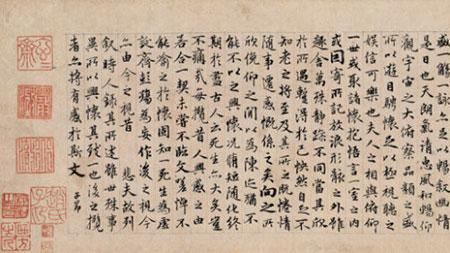 盛一觴一詠亦足以暢叙幽情
是日也天朗氣清惠風和暢仰
觀宇宙之大俯察品類之盛
所以遊目騁懷足以極視聽之
娛信可樂也夫人之相與俯仰
一世或取諸懷抱悟言一室之内
或因寄所託放浪形骸之外雖
趣舍萬殊静躁不同當其欣
於所遇蹔得於己快然自足不
知老之將至及其所之既惓情
隨事遷感慨係之矣向之所
欣俛仰之閒以為陳迹猶不
能不以之興懷況脩短隨化終
期於盡古人云死生亦大矣豈
不痛哉每攬昔人興感之由
若合一契未嘗不臨文嗟悼不
能喻之於懷固知一死生為虛
誕齊彭殤為妄作後之視今
亦由今之視昔 悲夫故列
叙時人録其所述雖世殊事
異所以興懷其致一也後之攬
者亦將有感於斯文
子昂